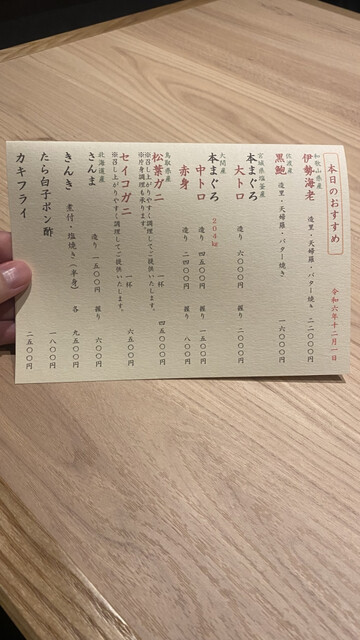 本日のおすすめ
令和六年十二月一日
和歌山県産
伊勢海老 造里・天婦羅・バター焼き 二二〇〇〇円
佐渡産
黒鮑 造里・天婦羅・バター焼き 一六〇〇〇円
宮城県塩釜産
本まぐろ
大トロ 造り 六〇〇〇円 握り 二〇〇〇円
大間産
本まぐろ 204kg
中トロ 造り 四五〇〇円 握り 一五〇〇円
赤身 造り 二四〇〇円 握り 八〇〇円
鳥取県産
松葉ガニ 一杯 四五〇〇〇円
※召し上がりやすく調理してご提供いたします。
※片身調理も承ります。
セイコガニ 一杯 六五〇〇円
※召し上がりやすく調理してご提供いたします。
北海道産
さんま 造り 一五〇〇円 握り 六〇〇円
きんき 煮付・塩焼き(半身) 各 九五〇〇円
たら白子ポン酢 一八〇〇円
カキフライ 二五〇〇円